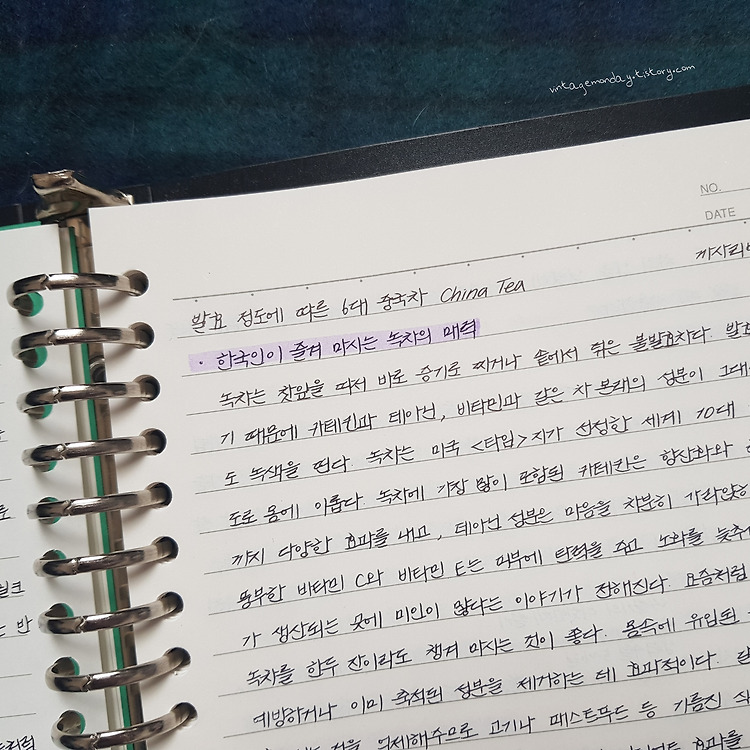 vintagemonday.tistory.com
NO.
DATE
발효 정도에 따른 6대 중국차 China Tea
· 한국인이 즐겨 마시는 녹차의 매력
녹차는 찻잎을 따서 바로 증기로 찌거나 솥에서 덖은 불발효차다. 발효
기 때문에 카테킨과 테아닌, 비타민과 같은 차 본래의 성분이 그대
도 녹색을 띤다. 녹차는 미국 <타임>지가 선정한 세계 10대
도로 몸에 이롭다. 녹차에 가장 많이 포함된 카테킨은 항산화와
까지 다양한 효과를 내고, 테아닌 성분은 마음을 차분히 가라앉히
풍부한 비타민 C와 비타민 E는 피부에 탄력을 주고 노화를 늦추
가 생산되는 곳에 미인이 많다는 이야기가 전해진다. 요즘처럼
녹차를 한두 잔이라도 챙겨 마시는 것이 좋다. 몸속에 유입된
예방하거나 이미 축적된 성분을 제거하는 데 효과적이다.
것을 억제해주므로 고기나 패스트푸드 등 기름진